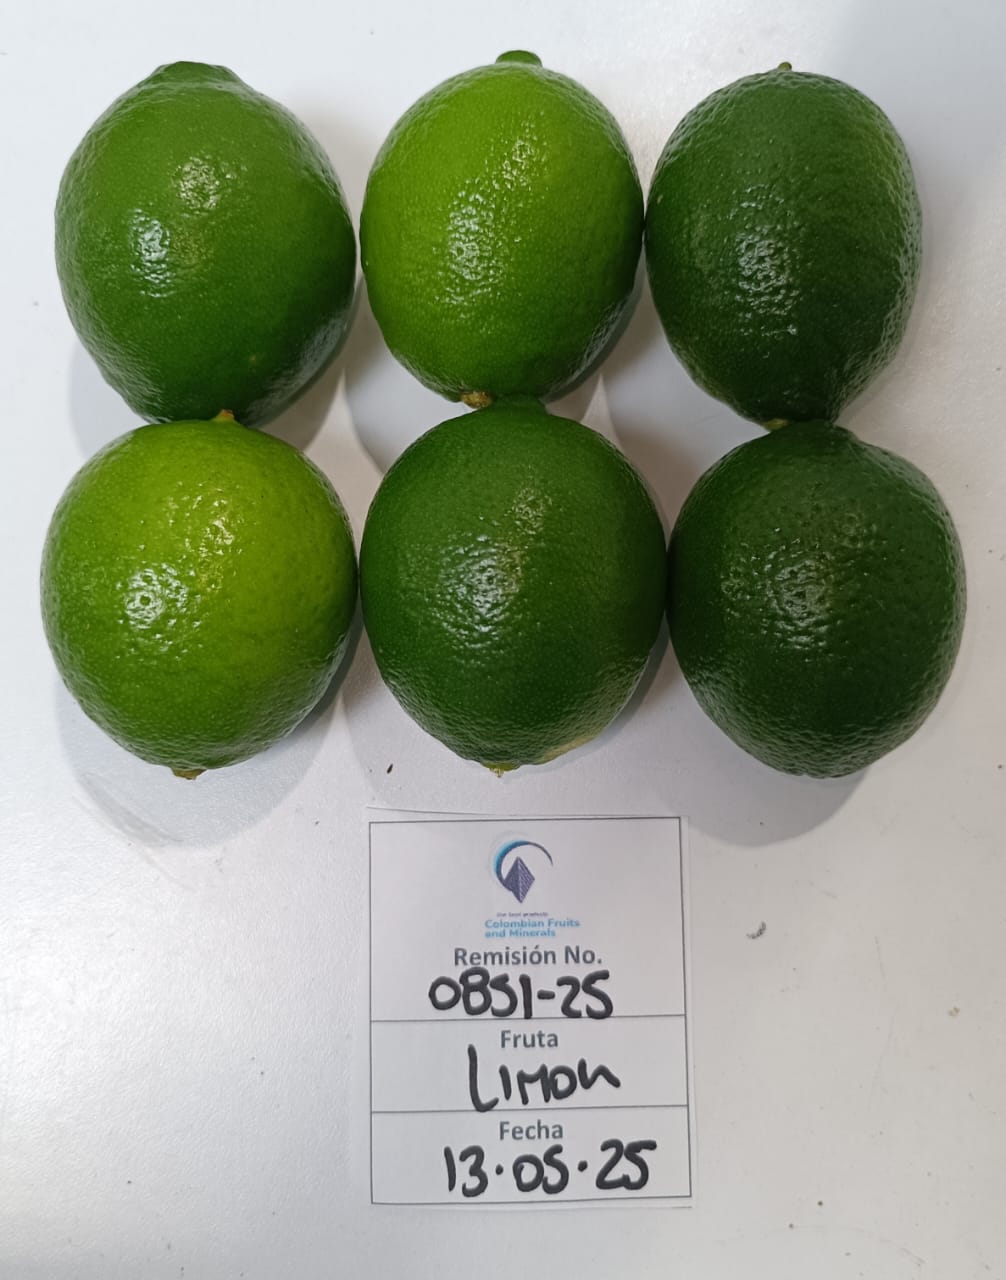 Our best products
Colombian Fruits
and Minerals
Remisión No.
0851-25
Fruta
LIMON
Fecha
13.05.25